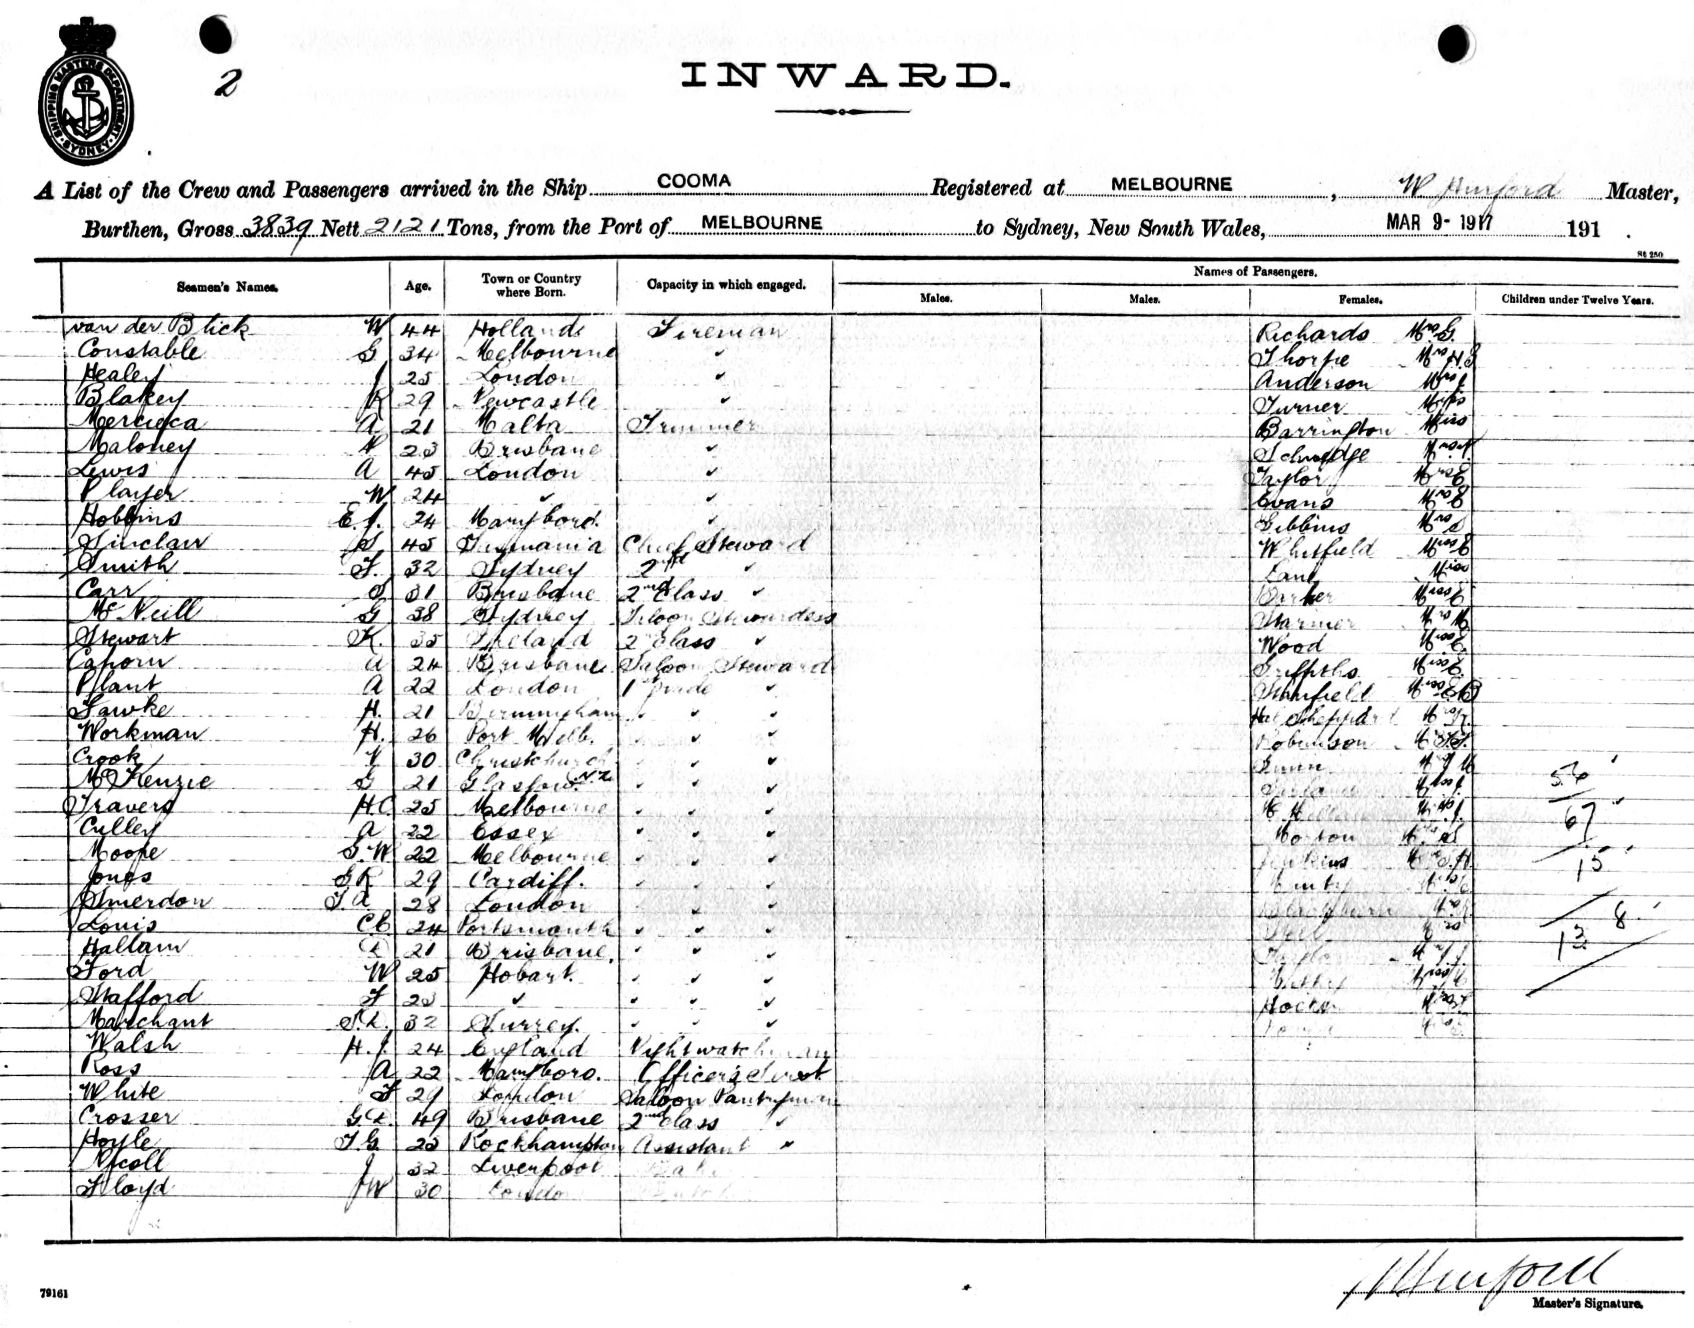 SHIPPING MASTERS DEPARTMENT SYDNEY
2
INWARD.
A List of the Crew and Passengers arrived in the Ship COOMA Registered at MELBOURNE, W Hurford Master,
Burthen, Gross 3839 Nett 2121 Tons, from the Port of MELBOURNE to Sydney, New South Wales, MAR 9 - 1917 191 .
St 250
Seamen's Names. Age. Town or Country where Born. Capacity in which engaged. Names of Passengers.
Males. Males. Females. Children under Twelve Years.
van der Blick W 44 Holland Fireman Richards Mrs G.
Constable G 34 Melbourne " Thorpe Mrs H G
Healey J 25 London " Anderson Mrs J
Blakey R 29 Newcastle " Turner Miss
Mercieca A 21 Malta Trimmer Barrington Miss
Maloney 23 Brisbane "
Lewis A 45 London " Taylor Mrs E
Player W 24 " " Evans Mrs E
Hobbins E. J. 24 Maryboro. " Gibbins Mrs
Sinclair S 45 Tasmania Chief Steward Whitfield Miss E
Smith F. 32 Sydney 2nd " Lane Miss
Carr S 31 Brisbane 2nd Class " Miss E
McNeill G 38 Sydney Saloon Stewardess Warmer Mrs M
Stewart K. 35 Ireland 2nd Class " Wood Miss E.
Cahorn A 24 Brisbane Saloon Steward Griffiths Miss E.
Plant A 22 London 1st Grade " Stanfield
Fawke H. 21 Birmingham " " " Sheppard
Workman H. 26 Port Melb. " " " Robinson
Crook V 30 Christchurch NZ " " " Gunn
McKenzie G 21 Glasgow " " " 56
Travers H.C 25 Melbourne " " "
Culley A 22 Essex " " " Morton 67
Moore G. W 22 Melbourne " " " Jenkins
Jones G R 29 Cardiff. " " " 15
Smerdon F. A 28 London " " "
Louis C E. 24 Portsmouth " " " 8
Hallam L 21 Brisbane. " " " Taylor 12
Ford W 25 Hobart. " " "
Stafford F 23 " " " " Hocke
Marchant 32 Surrey. " " "
Walsh H. J. 24 England Nightwatchman
Ross A 22 Maryboro. Officers Servt
White F 29 London Saloon Pantryman
Crosser G. L. 49 Brisbane 2nd Class "
Hoyle F. G. 25 Rockhampton Assistant "
Nicoll J 32 Liverpool
Floyd J W 30 London
W Hurford
79161
Master's Signature.